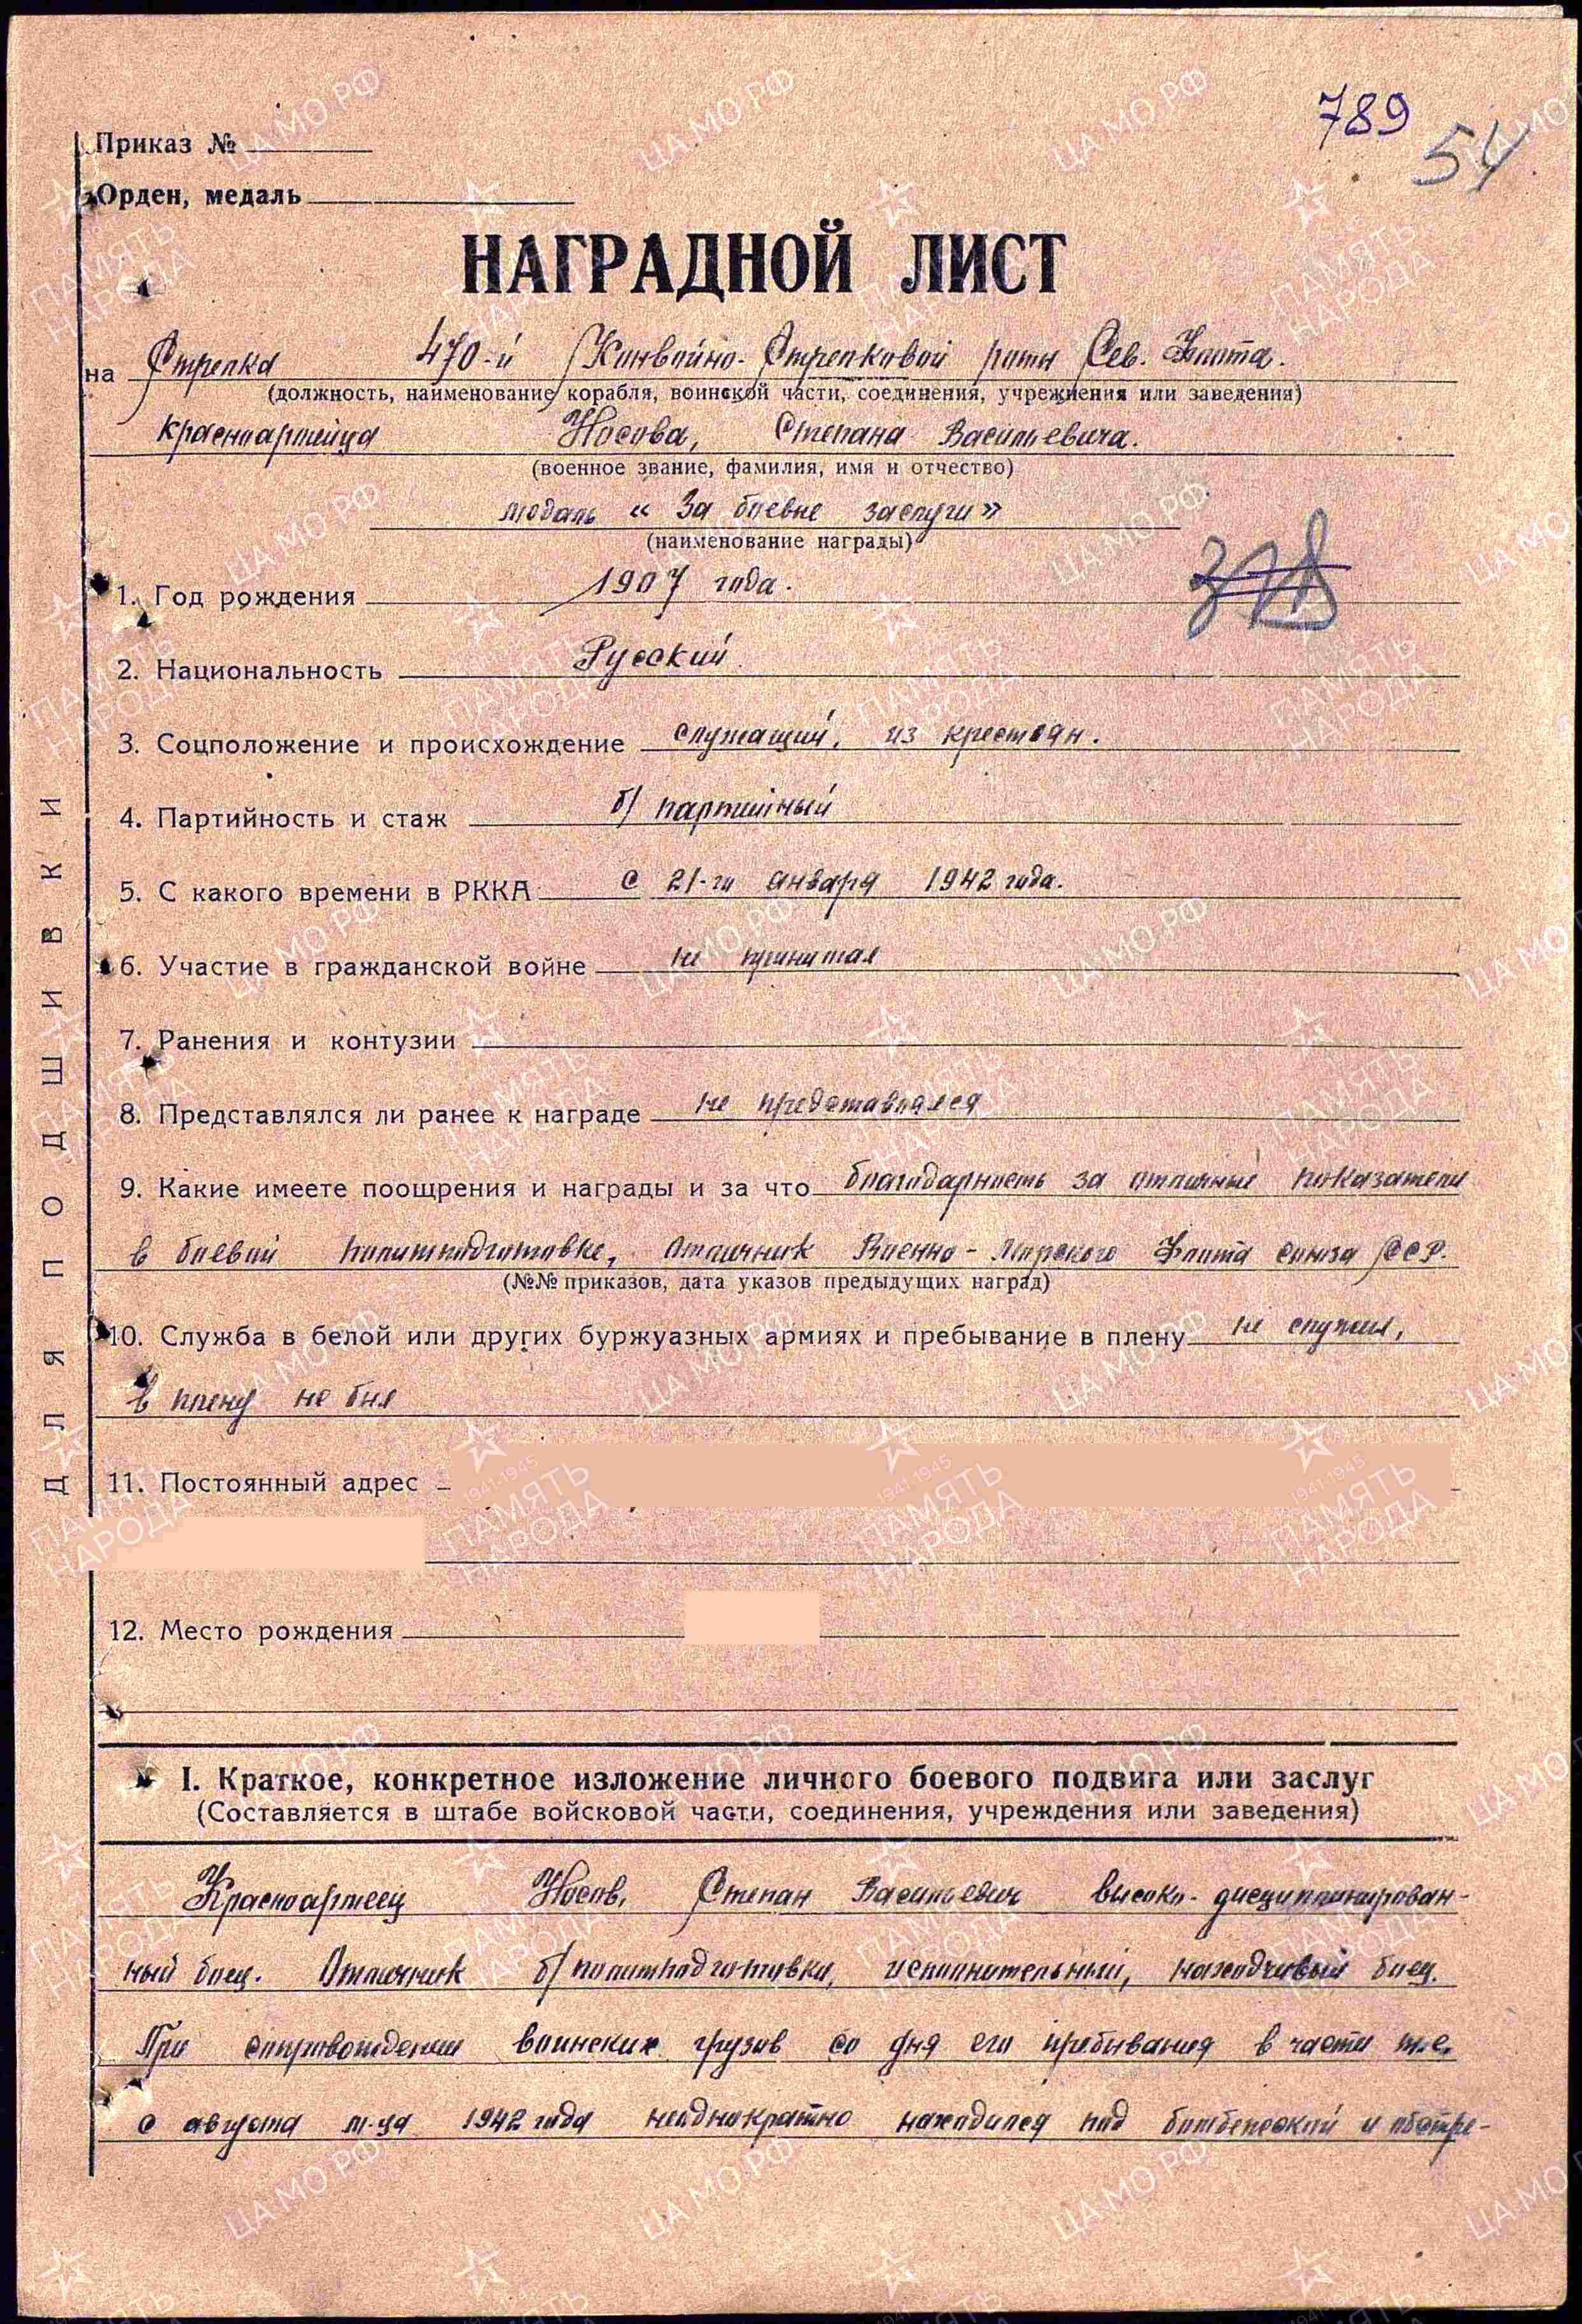 789
54
Приказ №
Орден, медаль
НАГРАДНОЙ ЛИСТ
на Стрелка 470-й Конвойно-Стрелковой роты Сев. Флота.
(должность, наименование корабля, воинской части, соединения, учреждения или заведения)
красноармейца Носова, Степана Васильевича.
(военное звание, фамилия, имя и отчество)
медаль « За боевые заслуги»
(наименование награды)
1. Год рождения 1907 года.
2. Национальность Русский
3. Соцположение и происхождение служащий, из крестьян.
4. Партийность и стаж б/партийный
5. С какого времени в РККА с 21-го января 1942 года.
6. Участие в гражданской войне не принимал
7. Ранения и контузии
8. Представлялся ли ранее к награде не представлялся
9. Какие имеете поощрения и награды и за что благодарность за отличные показатели
в боевой политподготовке, Отличник Военно-Морского Флота союза ССР.
(№№ приказов, дата указов предыдущих наград)
10. Служба в белой или других буржуазных армиях и пребывание в плену не служил,
в плену не был
11. Постоянный адрес
12. Место рождения
I. Краткое, конкретное изложение личного боевого подвига или заслуг
(Составляется в штабе войсковой части, соединения, учреждения или заведения)
Красноармеец Носов, Степан Васильевич высоко-дисциплинирован-
ный боец. Отличник б/политподготовки, исполнительный, находчивый боец.
При сопровождении воинских грузов со дня его пребывания в части т.е.
с августа м-ца 1942 года неоднократно находился под бомбежкой и обстре-
ДЛЯ ПОДШИВКИ
ЦА МО РФ
ПАМЯТЬ НАРОДА
1941-1945